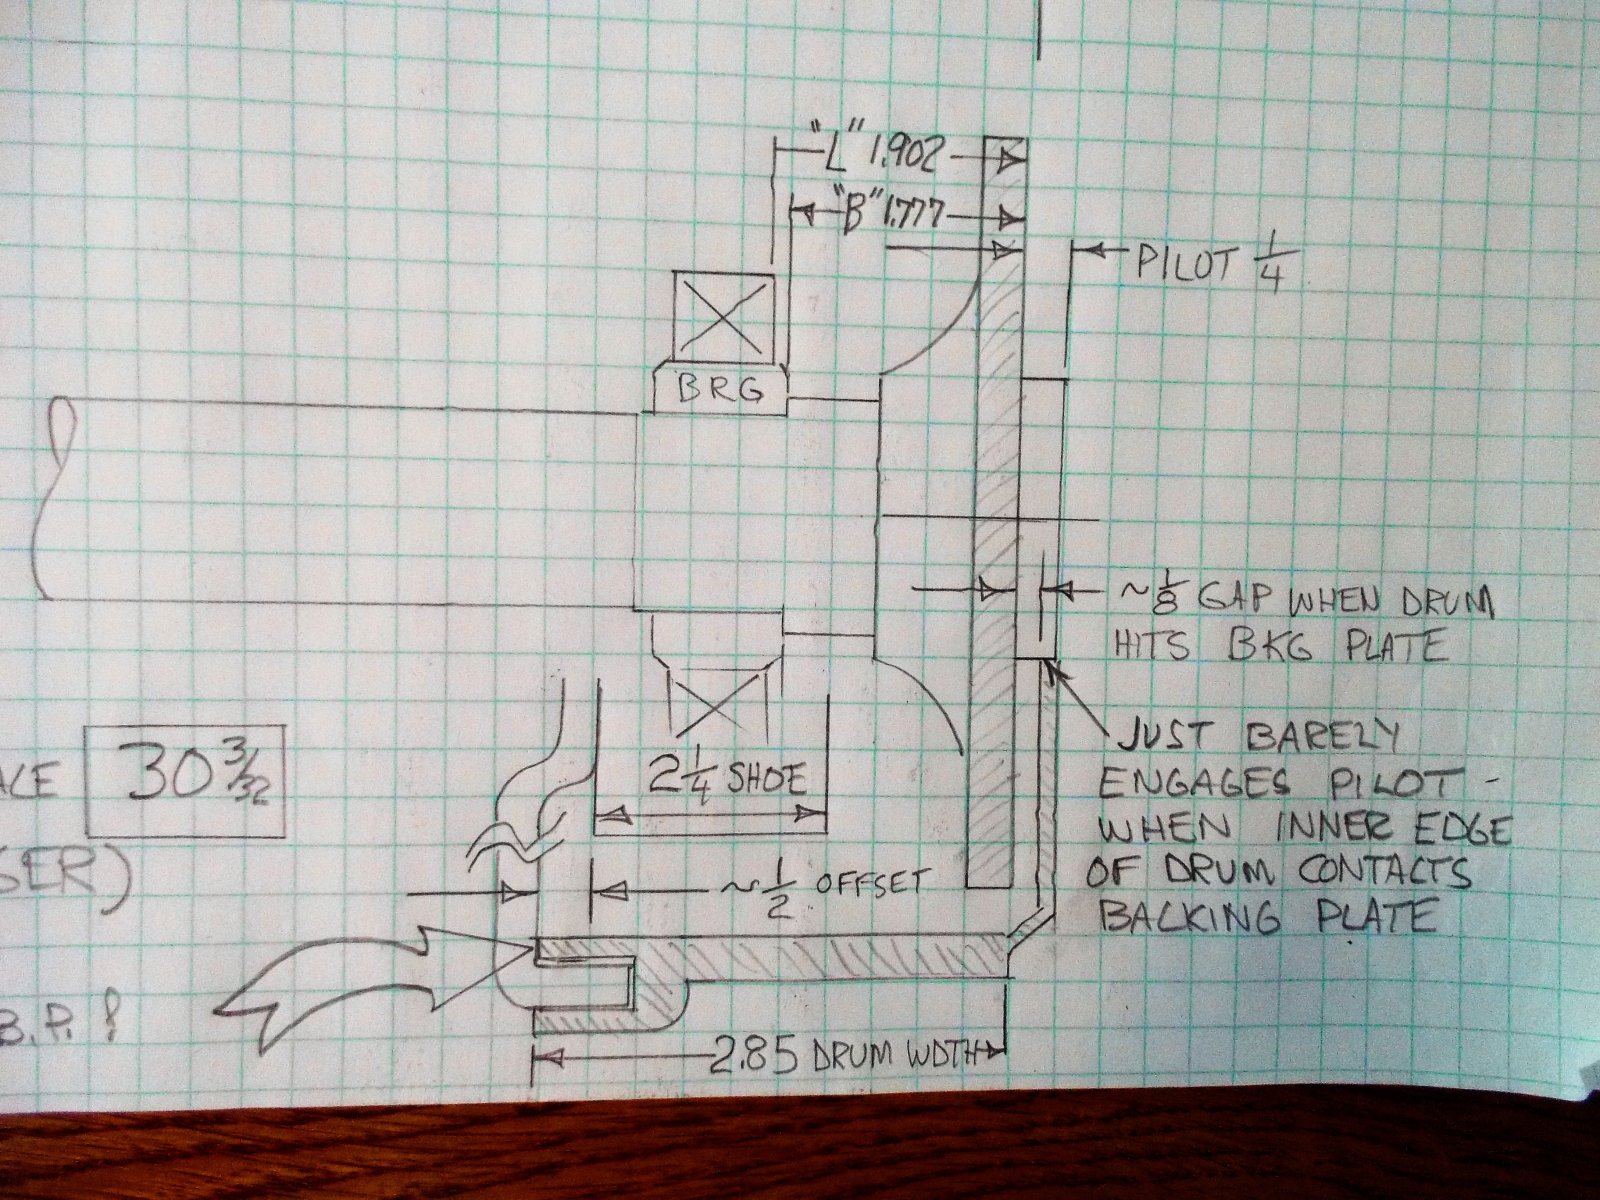 "L" 1.902
"B" 1.777
PILOT 1/4
BRG
~1/8 GAP WHEN DRUM
HITS BKG PLATE
2 1/4 SHOE
JUST BARELY
ENGAGES PILOT -
WHEN INNER EDGE
OF DRUM CONTACTS
BACKING PLATE
30 3/32
~1/2 OFFSET
B.P.!
2.85 DRUM WDTH